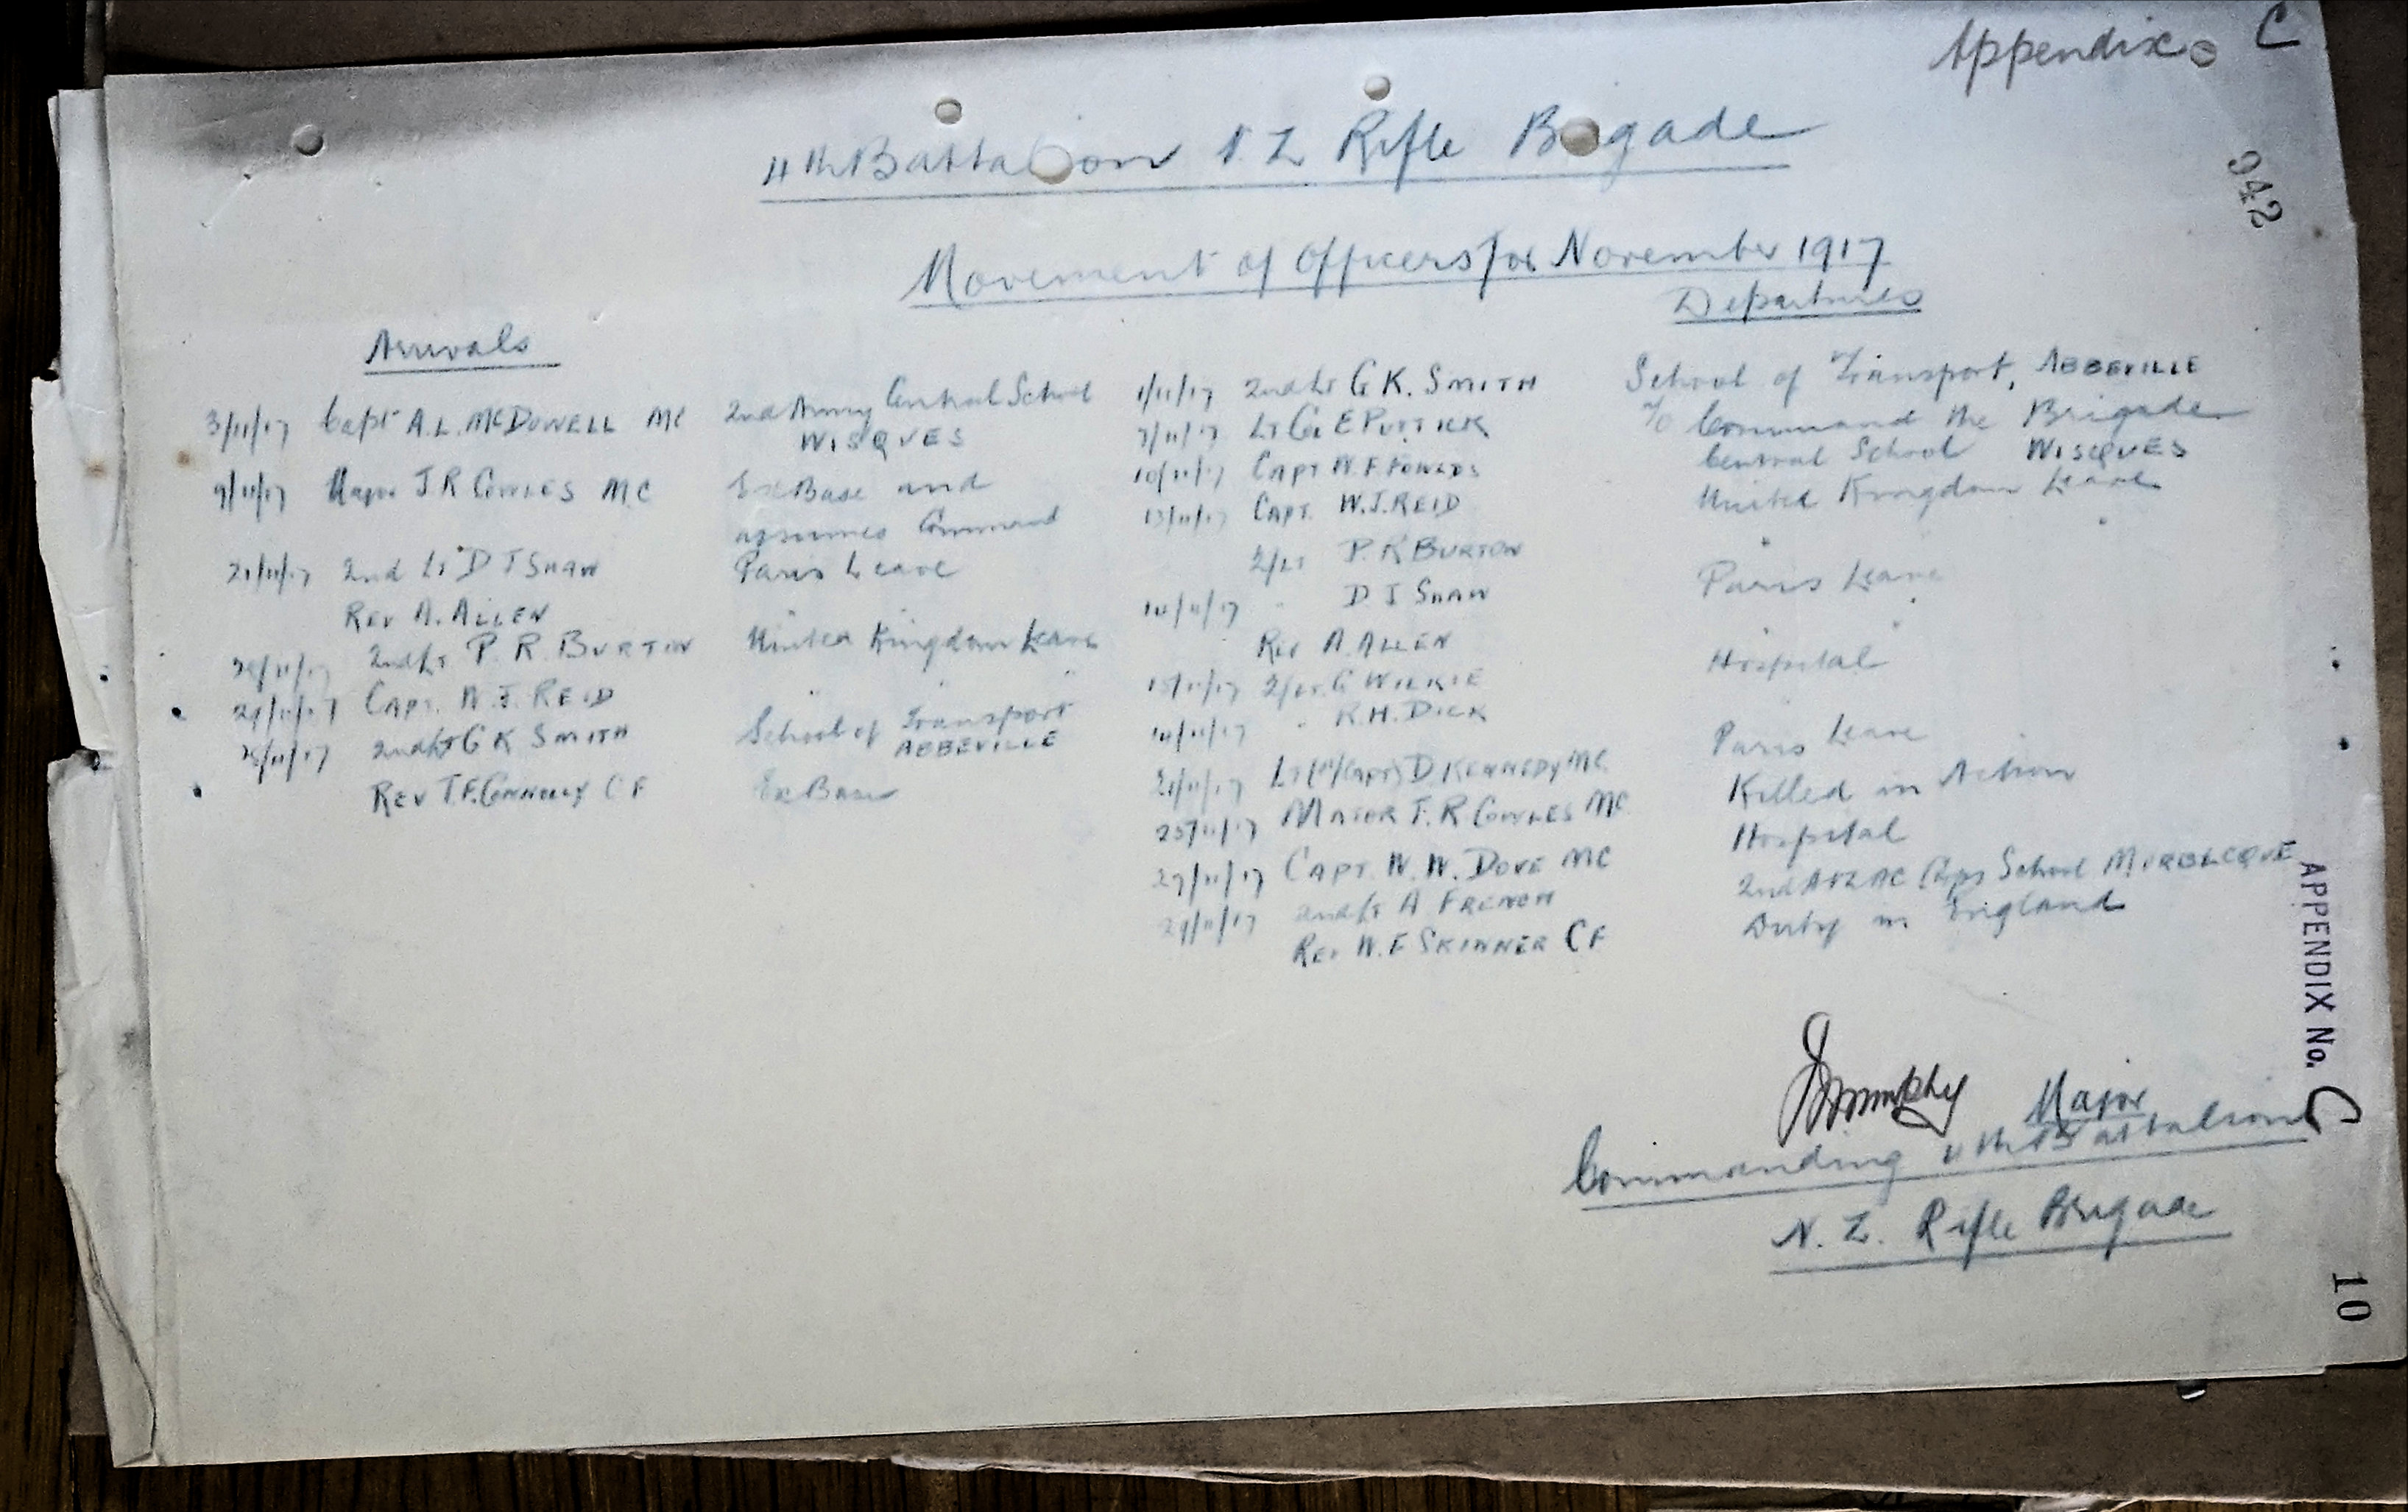 Appendix C
4th Battalion N Z Rifle Brigade
942
Movement of Officers for November 1917
Departures
Arrivals
3/11/17 Capt A.L. McDOWELL MC 2nd Army Central School
WISQUES
9/11/17 Major J R COWLES MC Ex Base and
assumes Command
21/11/17 2nd Lt D J SHAW Paris Leave
REV A. ALLEN
2nd Lt P. R. BURTON United Kingdom Leave
29/11/17 CAPT. W. J. REID " "
2nd Lt G K SMITH School of Transport
ABBEVILLE
REV T.F. CONNOLLY C F Ex Base
1/11/17 2nd Lt G K. SMITH School of Transport, ABBEVILLE
7/11/17 LT G. E PUTTICK T/o Command the Brigade
10/11/17 CAPT W. F. FOWLDS Central School WISQUES
13/11/17 CAPT. W. J. REID United Kingdom Leave
2/LT P. R BURTON " "
14/11/17 " D. J SHAW Paris Leave
REV A. ALLEN " "
15/11/17 2/LT. G WILKIE Hospital
" R. H. DICK
21/11/17 LT (T/CAPT) D KENNEDY MC Paris Leave
25/11/17 MAJOR J. R COWLES MC Killed in Action
27/11/17 CAPT. W. W. DOVE MC Hospital
29/11/17 2nd Lt A FRENCH 2nd ANZAC Corps School MORBECQUE
REV W. E SKINNER C F Duty in England
APPENDIX No. C
Major
Commanding 4th Battalion
N. Z. Rifle Brigade
10